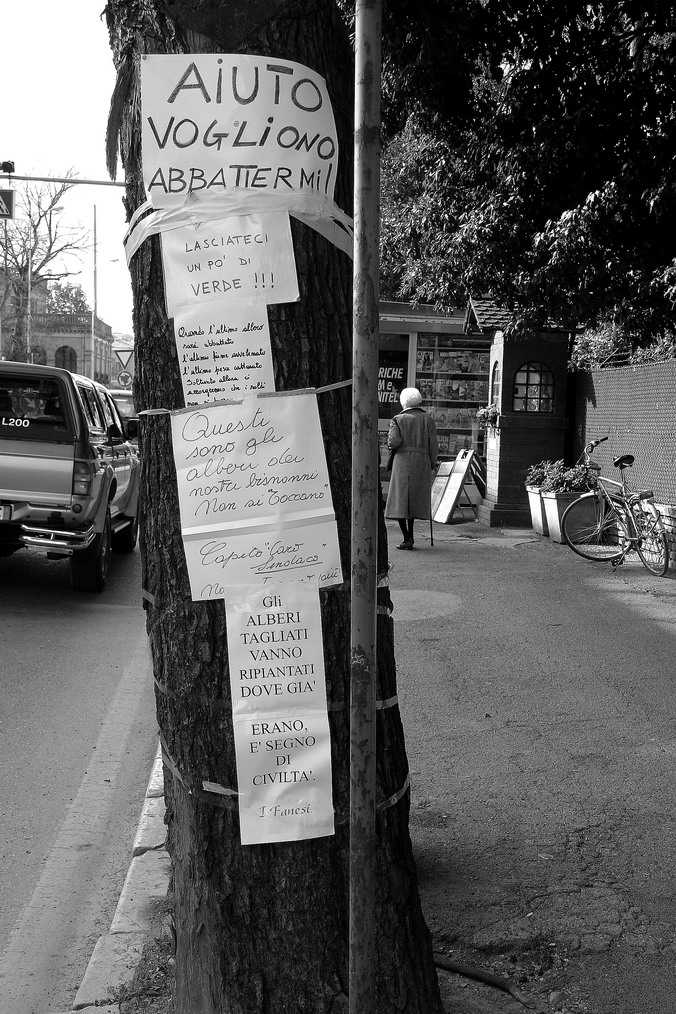 AIUTO
VOGLIONO
ABBATTERMI!
LASCIATECI
UN PO' DI
VERDE !!!
Quando l'ultimo albero
sarà abbattuto
l'ultimo fiume avvelenato
l'ultimo pesce catturato
Soltanto allora ci
accorgeremo che i soldi
non si
Questi
sono gli
alberi dei
nostri bisnonni
Non si "Toccano"
Capito "Caro
Sindaco"
Gli
ALBERI
TAGLIATI
VANNO
RIPIANTATI
DOVE GIA'
ERANO,
E' SEGNO
DI
CIVILTA'.
I Fanesi.
L200
RICHE
M e
NITEL